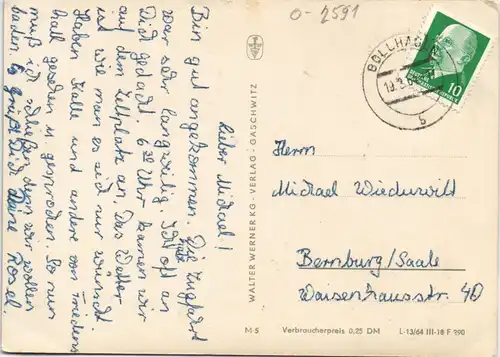 0-2591
Lieber Michael!
Bin gut angekommen. Die Zugfahrt
war sehr langweilig. Ich hab oft an
Dich gedacht. 6 30 Uhr kamen wir
auf dem Zeltplatz an. Das Wetter
ist wie man es sich nur wünscht.
Haben Kalle und andere von
hall gesehen u. gesprochen. So nun
muß ich schließen denn wir wollen
baden. Es grüßt Dich Deine Rosel.
WALTER WERNER KG · VERLAG · GASCHWITZ
BOLLHAG
19.
b
10
Herrn
Michael Wiederwilt
Bernburg/Saale
Waisenhausstr. 40
M-5 Verbraucherpreis 0,25 DM L-13/64 III-18 F 290